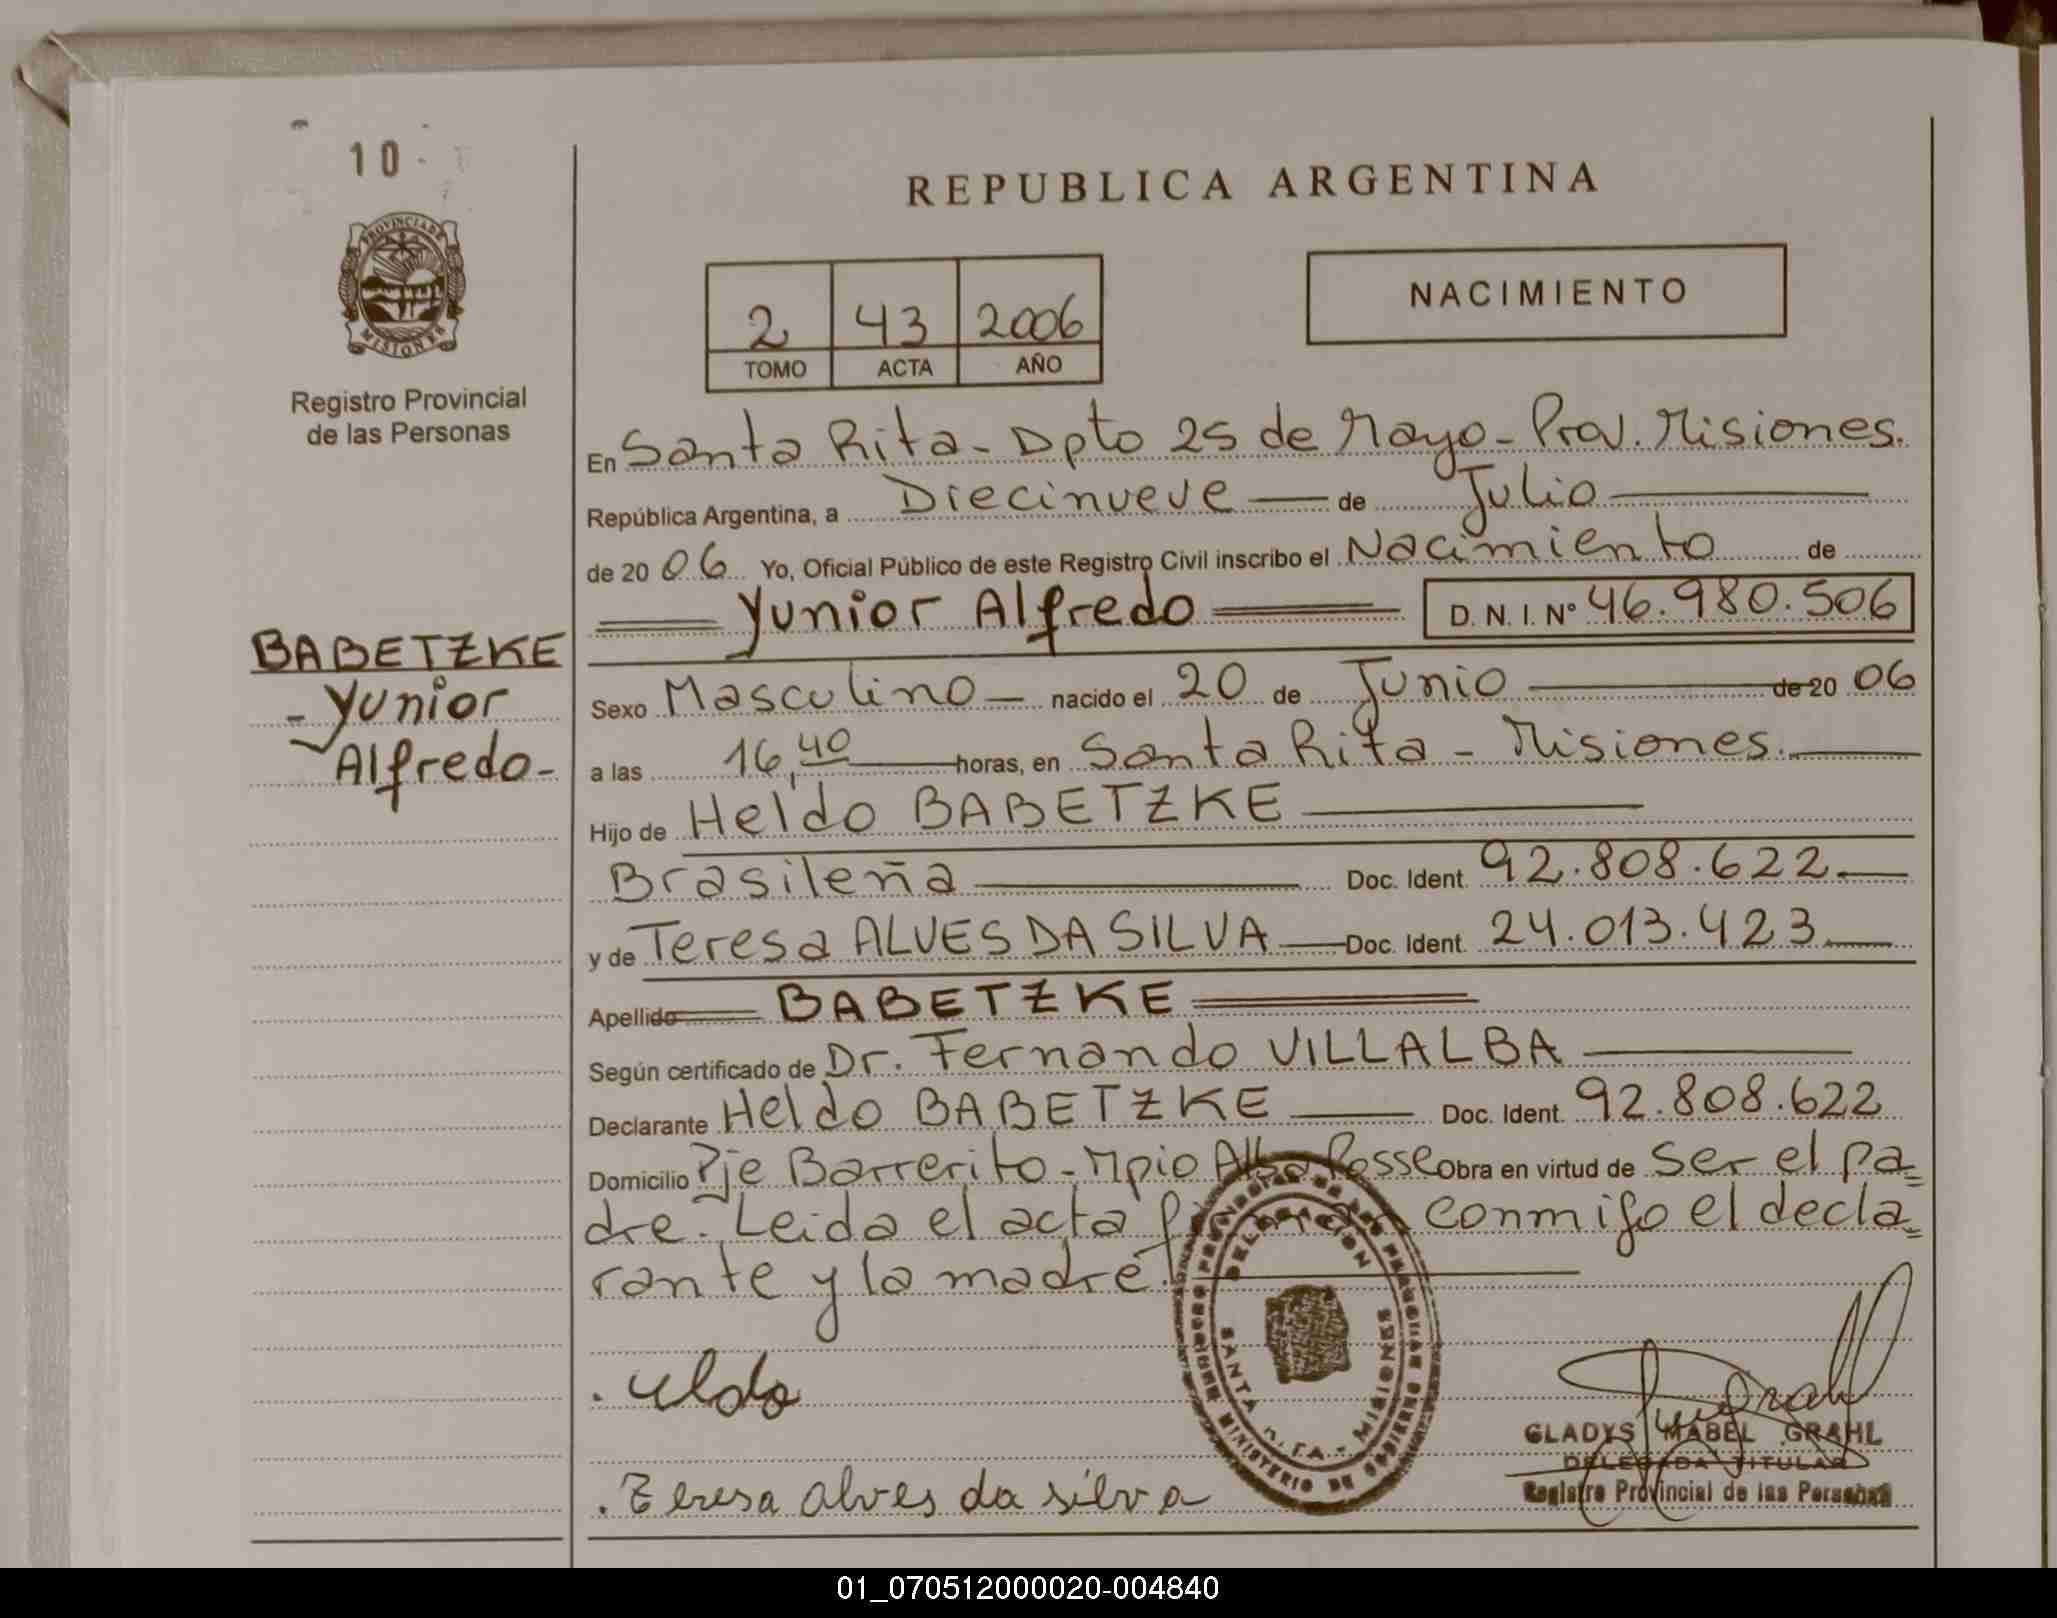 10
PROVINCIA DE
MISIONES
Registro Provincial
de las Personas
REPUBLICA ARGENTINA
2 43 2006
TOMO ACTA AÑO
NACIMIENTO
En Santa Rita - Dpto 25 de Mayo - Prov. Misiones.
República Argentina, a Diecinueve de Julio
de 2006 Yo, Oficial Público de este Registro Civil inscribo el Nacimiento de
Yunior Alfredo D. N. I. Nº 46.980.506
BABETZKE
- Yunior
Alfredo-
Sexo Masculino nacido el 20 de Junio de 2006
a las 16,40 horas, en Santa Rita - Misiones.
Hijo de Heldo BABETZKE
Brasileña Doc. Ident. 92.808.622
y de Teresa ALVES DA SILVA Doc. Ident. 24.013.423
Apellido BABETZKE
Según certificado de Dr. Fernando VILLALBA
Declarante Heldo BABETZKE Doc. Ident. 92.808.622
Domicilio Pje Barrerito - Mpio Alba Posse Obra en virtud de ser el pa=
dre. Leida el acta conmigo el decla=
rante y la madre.
DELEGACION
SANTA RITA - MISIONES
MINISTERIO DE GOBIERNO
. Teresa alves da silva
GLADYS MABEL GRAHL
DELEGADA TITULAR
Registro Provincial de las Personas
01_070512000020-004840